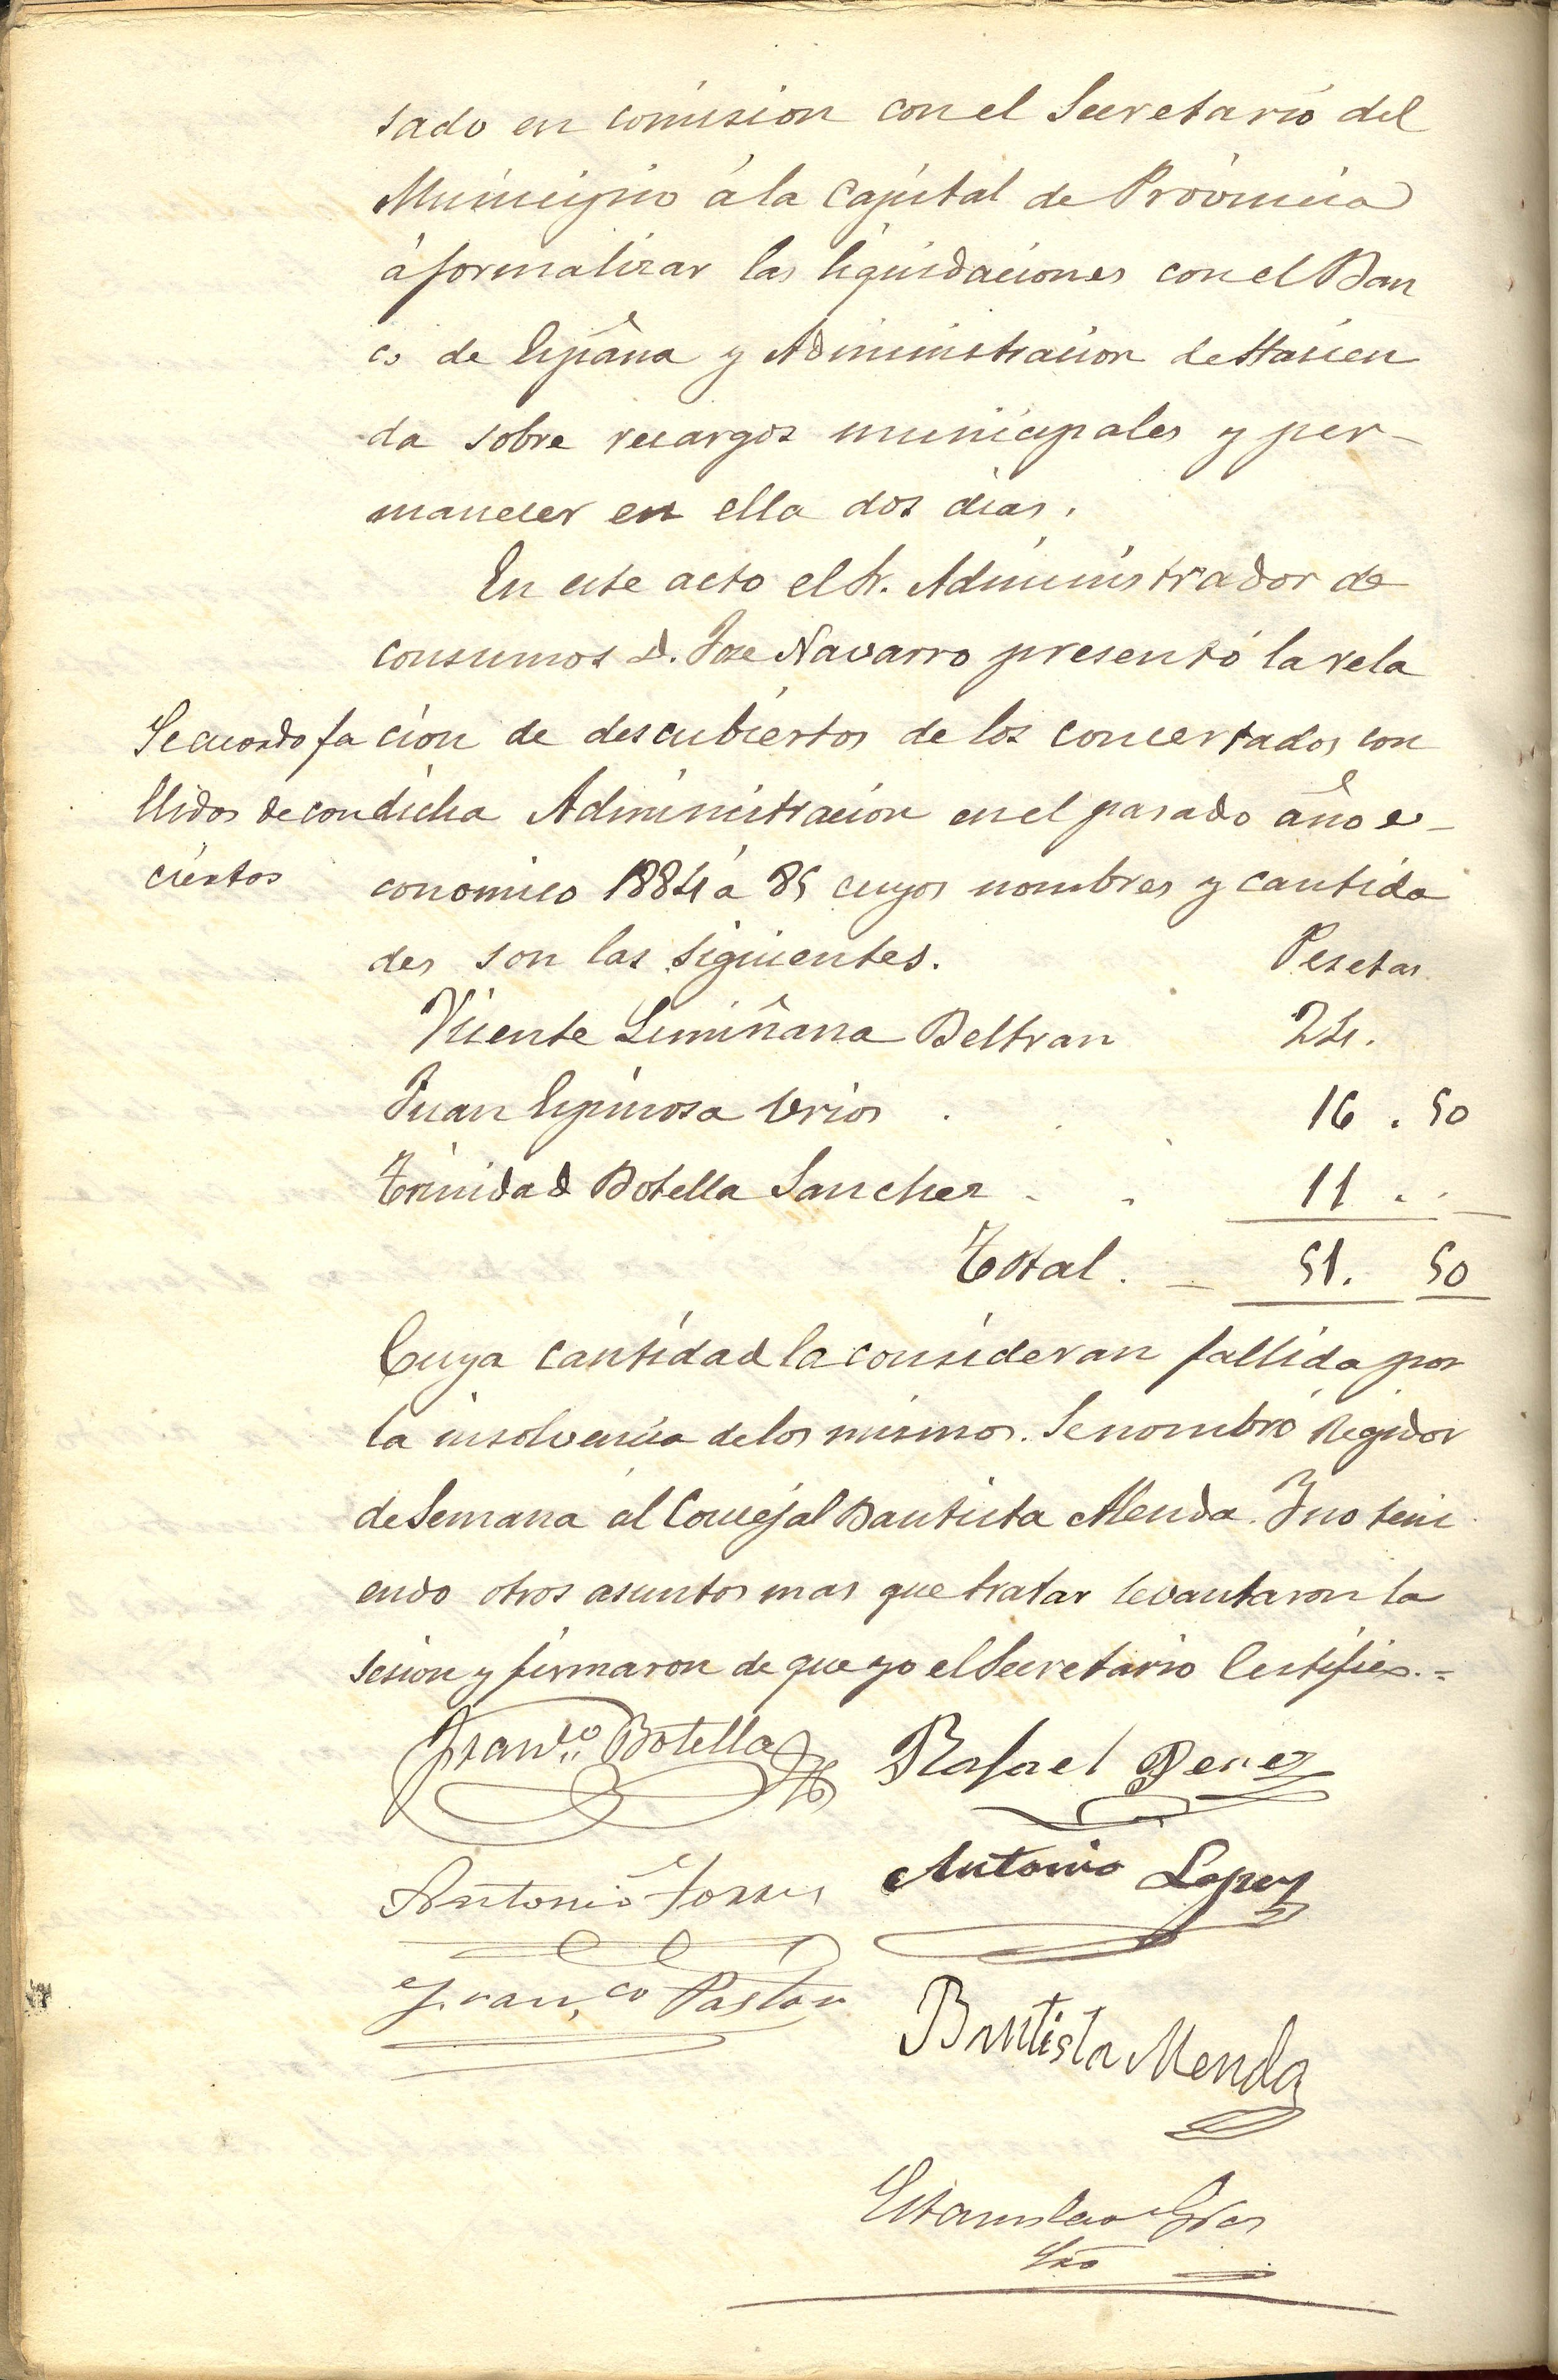 sado en comision con el Secretario del
Municipio á la capital de Provincia
á formalizar las liquidaciones con el Ban
co de España y Administracion de Hacien
da sobre recargos municipales y per-
manecer en ella dos dias.
En este acto el Sr. Administrador de
consumos D. Jose Navarro presentó la rela
cion de descubiertos de los concertados con
dicha Administracion en el pasado año e-
conomico 1884 á 85 cuyos nombres y cantida
des son las siguientes. Pesetas
Se acuerda fa
llidos de con
ciertos
Vicente Limiñana Beltran 24.
Juan Espinosa Brios . 16 . 50
Trinidad Botella Sanchez . . 11 . .
Total . - 51. 50
Cuya cantidad la consideran fallida por
la insolvencia de los mismos. Se nombró Regidor
de Semana al Concejal Bautista Menda. Y no teni
endo otros asuntos mas que tratar levantaron la
sesion y firmaron de que yo el Secretario Certifico.=
Franco Botella Rafael Perez
Antonio Torres Antonio Lopez
Franco Pastor
Bautista Menda
Estanislao
Srio